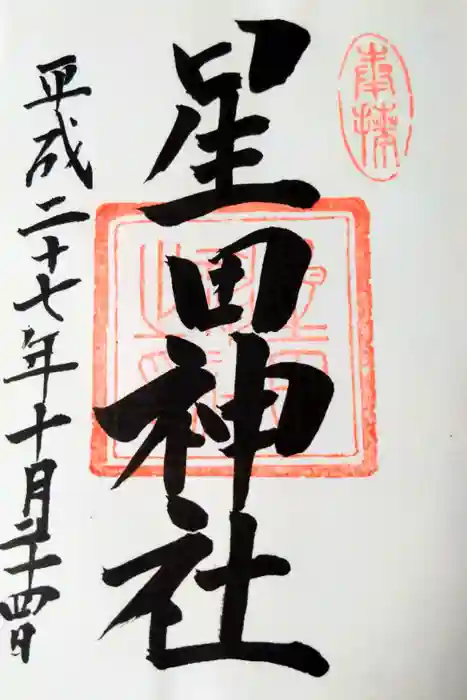 奉拝
星田神社
平成二十七年十月二十四日